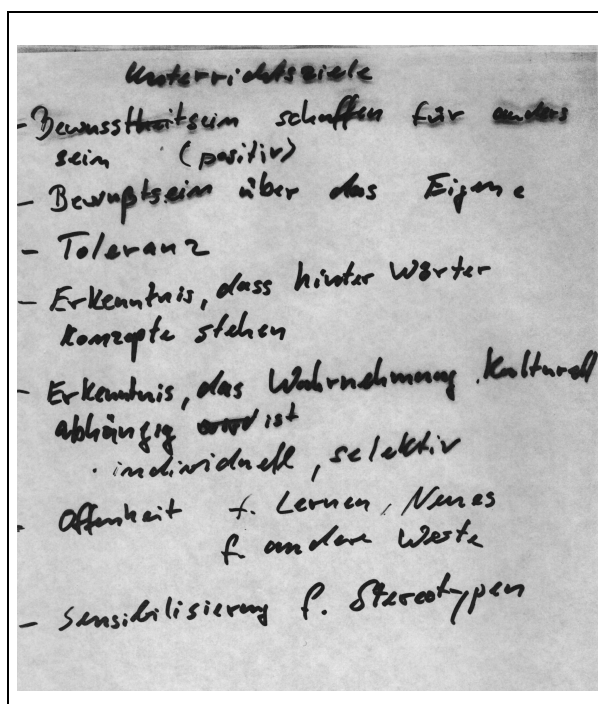 Unterrichtsziele
- Bewusstheitsein schaffen für anders
sein (positiv)
- Bewußtsein über das Eigene
- Toleranz
- Erkenntnis, dass hinter Wörter
Konzepte stehen
- Erkenntnis, das Wahrnehmung kulturell
abhängig ist
· individuell, selektiv
- Offenheit f. Lernen, Neues
f. andere Werte
- Sensibilisierung f. Stereotypen